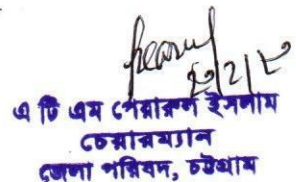 এ টি এম পেয়ারুল ইসলাম
চেয়ারম্যান
জেলা পরিষদ, চট্টগ্রাম